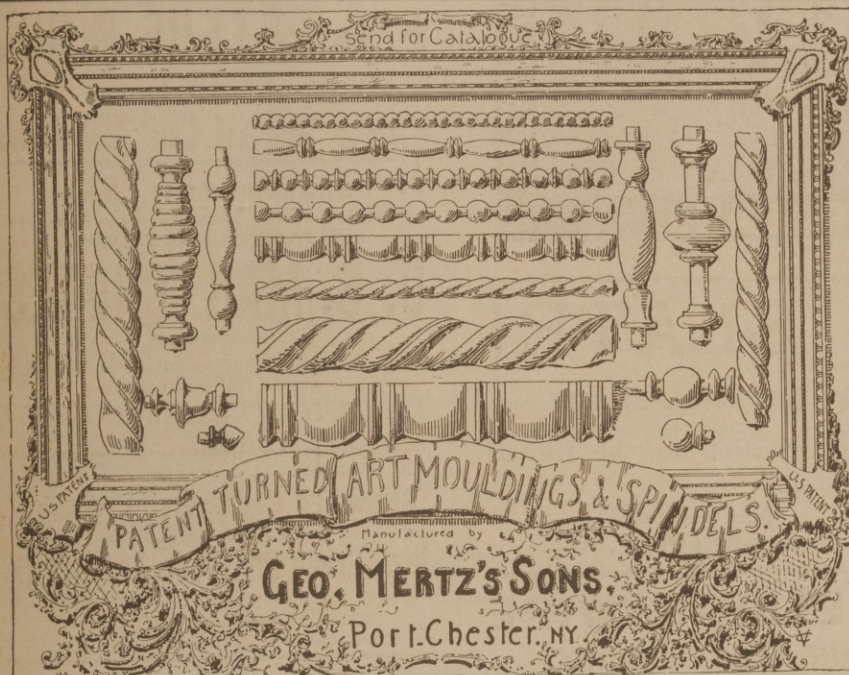 Send for Catalogue
U.S PATENT
PATENT TURNED ART MOULDINGS & SPINDELS.
U.S PATENT
Manufactured by
GEO. MERTZ'S SONS.
Port Chester, NY.